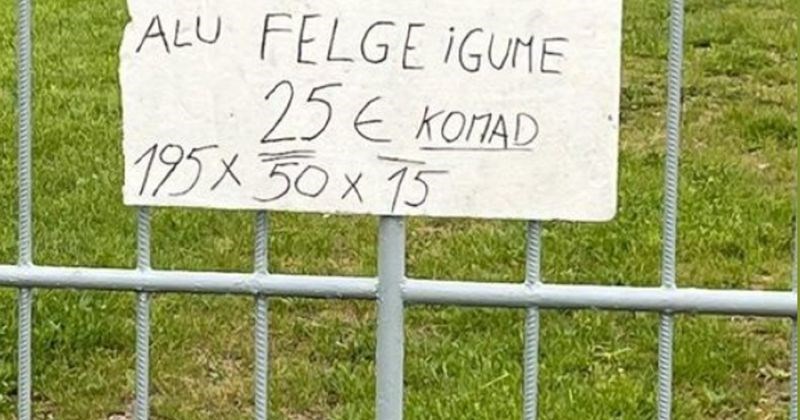 ALU FELGE iGUME
25 € KOMAD
195 x 50 x 15